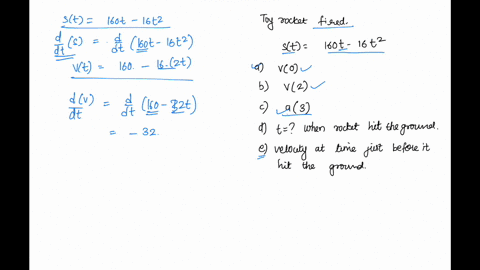 s(t) = 160t - 16t²
d/dt (s) = d/dt (160t - 16t²)
v(t) = 160 - 16(2t)
d(v)/dt = d/dt (160 - 32t)
= - 32
Toy rocket fired.
s(t) = 160t - 16t²
a) v(0) ✓
b) v(2) ✓
c) a(3)
d) t=? when rocket hit the ground.
e) velocity at time just before it
hit the ground.